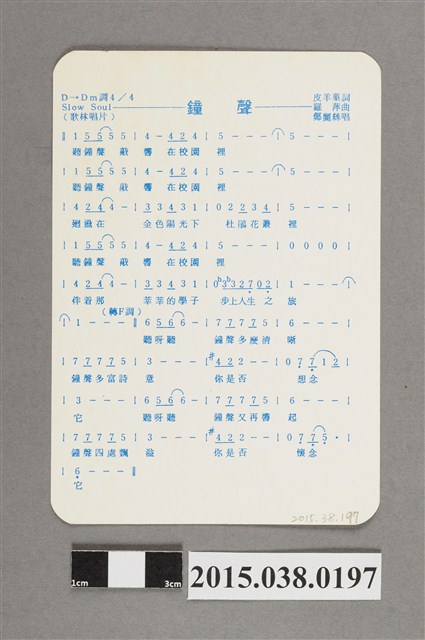 D→Dm調4／4
Slow Soul
（歌林唱片）
鐘 聲
皮羊菓詞
羅萍曲
鄭蘭絲唱
‖ 1 5 5 5 5 | 4 - 4 2 4 | 5 - - - | 5 - - - |
聽鐘聲 敲 響 在校園 裡
| 1 5 5 5 5 | 4 - 4 2 4 | 5 - - - | 5 - - - |
聽鐘聲 敲 響 在校園 裡
| 4 2 4 4 - | 3 3 4 3 1 | 0 2 2 3 4 | 5 - - - |
迴盪在 金色陽光下 杜鵑花叢 裡
| 1 5 5 5 5 | 4 - 4 2 4 | 5 - - - | 0 0 0 0 |
聽鐘聲 敲 響 在校園 裡
| 4 2 4 4 - | 3 3 4 3 1 | 0 ♭3 ♭3 2 7 0 2 | 1 - - - |
伴着那 莘莘的學子 步上人生 之 旅
（轉F調）
| 1 - - - ‖ 6 5 6 6 - | 7 7 7 7 5 | 6 - - - |
聽呀聽 鐘聲多麼清 晰
| 7 7 7 7 5 | 3 - - - | #4 2 2 - - | 0 7 7 1 2 |
鐘聲多富詩 意 你是否 想念
| 3 - - - | 6 5 6 6 - | 7 7 7 7 5 | 6 - - - |
它 聽呀聽 鐘聲又再響 起
| 7 7 7 7 5 | 3 - - - | #4 2 2 - - | 0 7 7 5 · |
鐘聲四處飄 溢 你是否 懷念
| 6 - - - ‖
它
2015.38.197
1cm 3cm
2015.038.0197